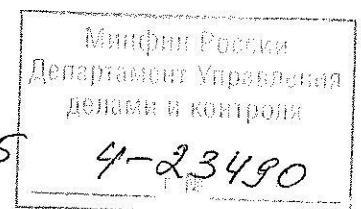 Минфин России
Департамент Управления
делами и контроля
5 4-23490